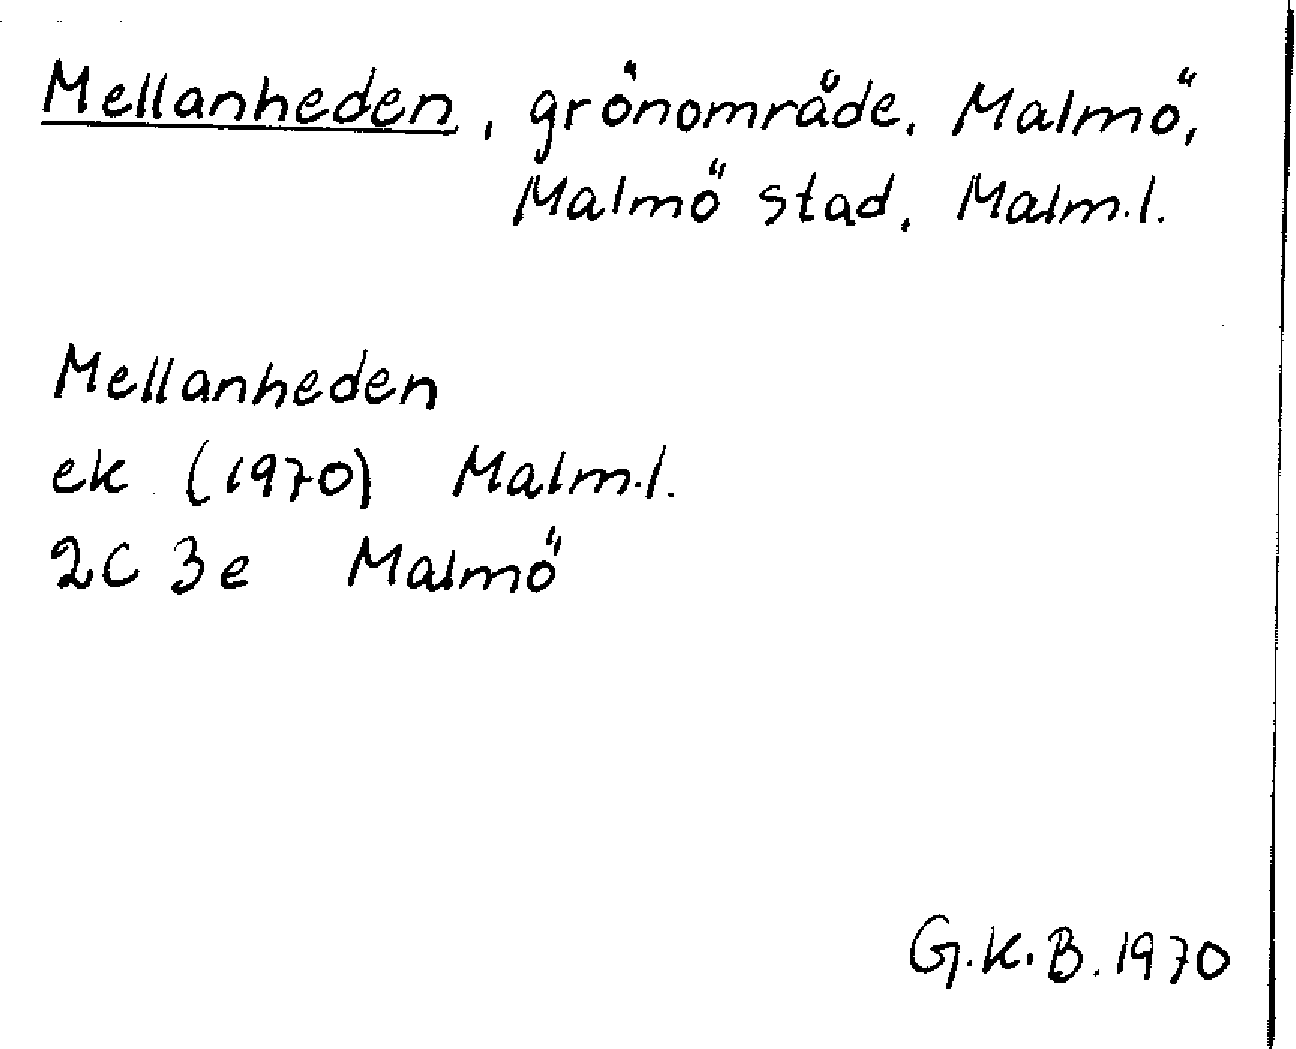 Mellanheden, grönområde, Malmö,
Malmö stad, Malm.l.
Mellanheden
ek (1970) Malm.l.
2C 3e Malmö
G.K.B. 1970